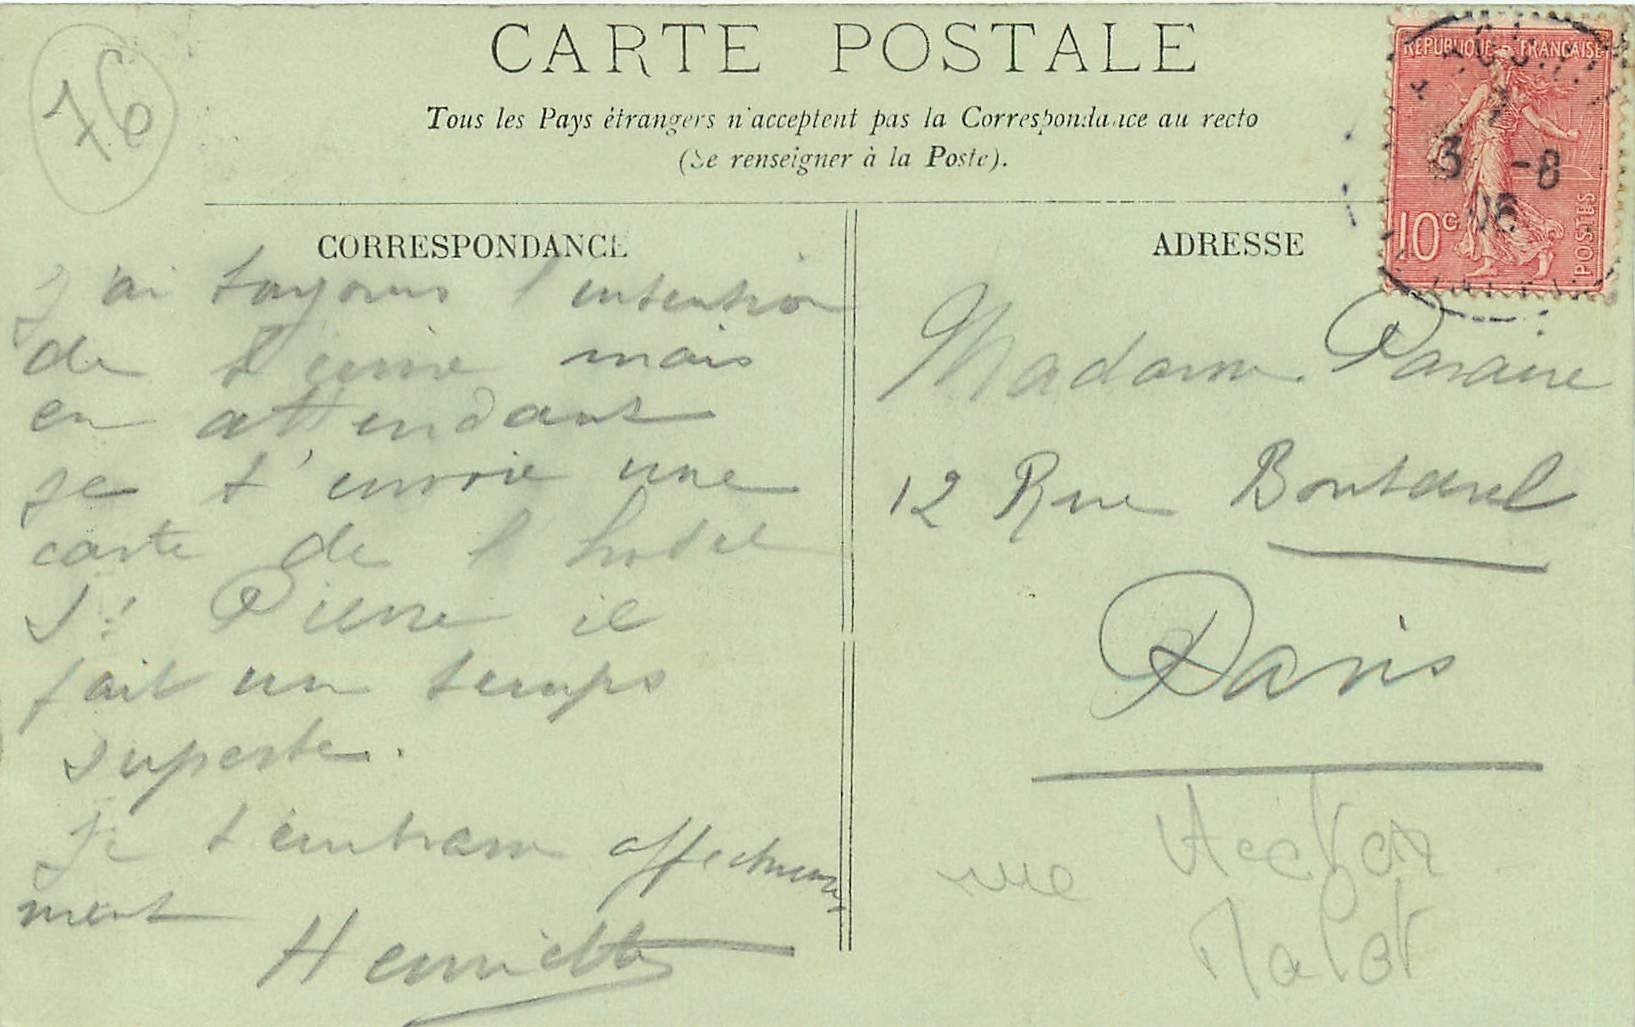 76
CARTE POSTALE
Tous les Pays étrangers n'acceptent pas la Correspondance au recto
(Se renseigner à la Poste).
CORRESPONDANCE
J'ai toujours l'intention
de t'écrire mais
en attendant
je t'envoie une
carte de l'hotel
St Pierre il
fait un temps
superbe.
Je t'embrasse affectueuse-
ment
Henriette
ADRESSE
RÉPUBLIQUE FRANÇAISE
10c
POSTES
3 -8
06
Madame Paraire
12 Rue Boutarel
Paris
rue Hector
Malot